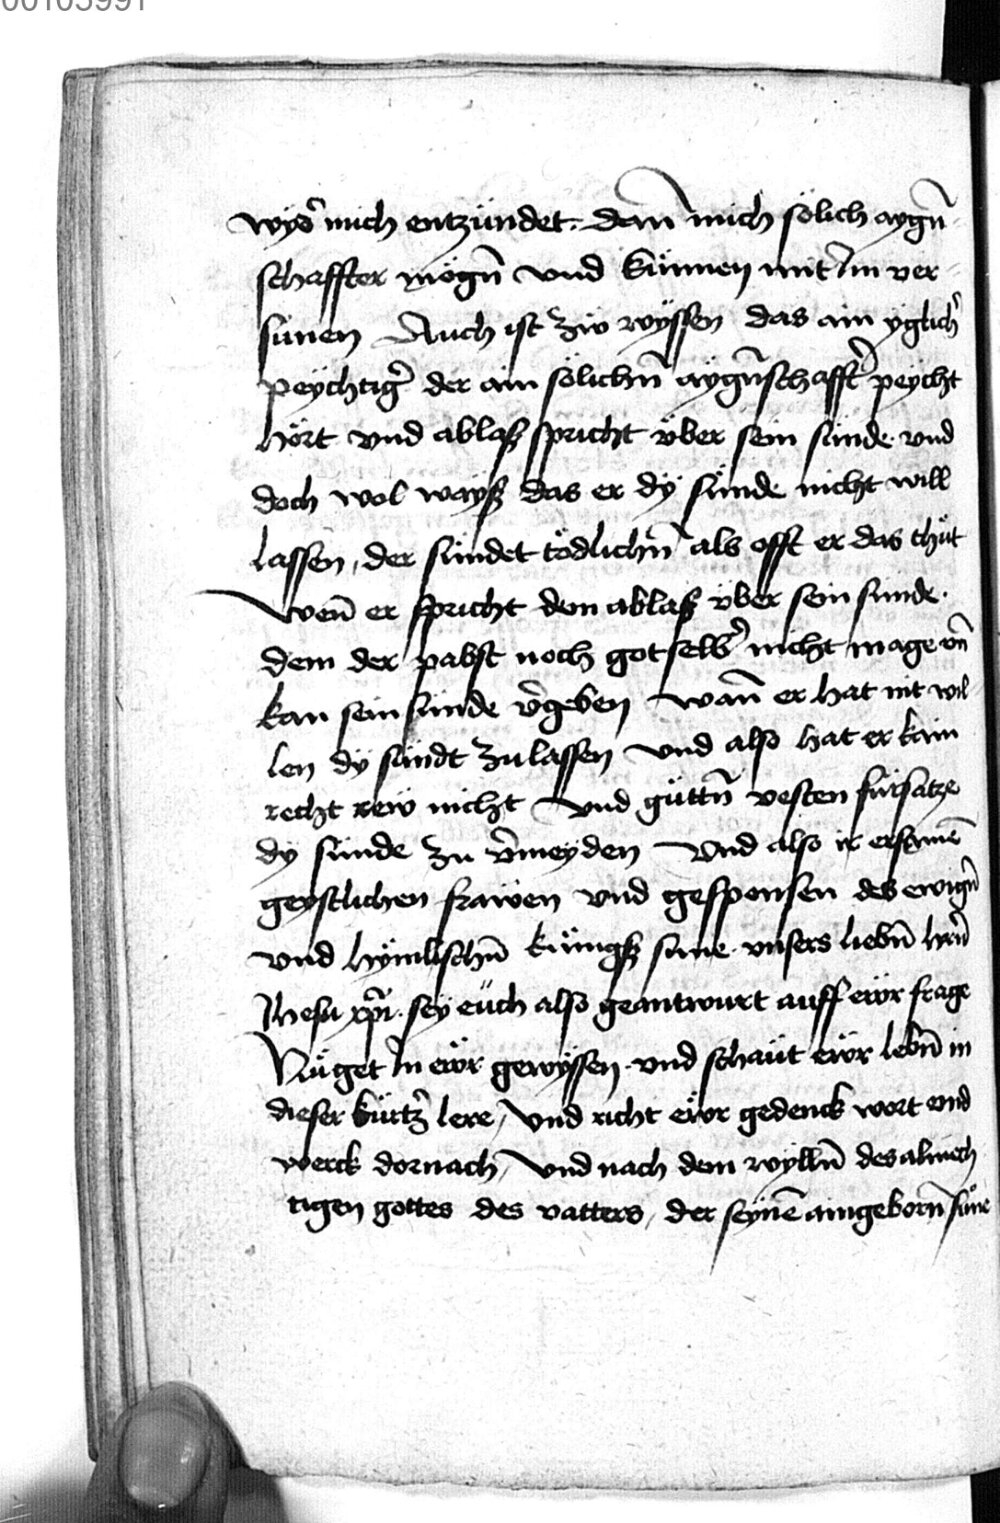 00103991
wyd̕ mich entzündet. dan̄ mich sölich aygn̄
schaffter mögn̄ vnd künnen mit Im ver
sünen Auch ist zw wyssen das ain yglich̕
peychtig̕ der ain sölichn̄ aygn̄schafft̕ peycht
hört vnd ablaß spricht über sein sünde. vnd
doch wol wayß das er dy sünde nicht will
lassen, der sündet tödlichn̄ als offt er das thüt
Wen̄ er spricht dem ablaß über sein sünde.
dem der pabst noch got selb̕ nicht mage vn̄
kan sein sünde v̕geben Wan̄ er hat nit wil
len dÿ sündt zu lassen Vnd also hat er kain
recht rew nicht Vnd güttn̄ vesten fürsatze
dÿ sünde zu v̕meyden Vnd also ir ersamē
geystlichen frawen vnd gesponsen des ewign̄
vnd hÿmlischn̄ künigß sune. vnsers liebn̄ hrn̄
Ihesu xp̄i. sey euch also geantwurt auff ewr frage
Nüget In ewr gewyssen. vnd schaut ewr lebn̄ in
dieser kürtz̕ lere, Vnd richt ewr gedenck wort vnd
werck dornach, Vnd nach dem wylln̄ des almech
tigen gottes des vatters, der seynē aingeborn̄ süne